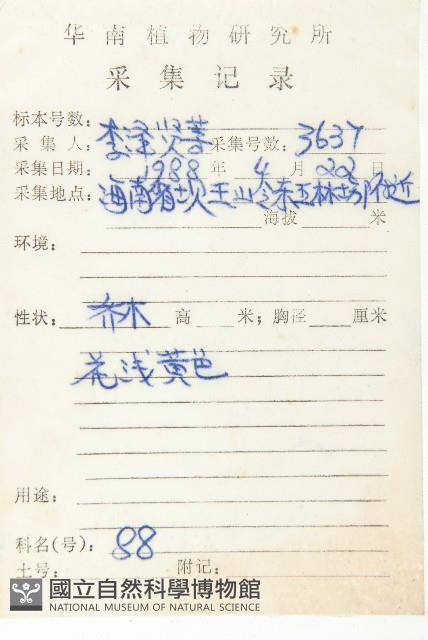 华南植物研究所
采集记录
标本号数:
采集人: 李泽贤等 采集号数: 3637
采集日期: 1988 年 4 月 22 日
采集地点: 海南省坝王岭东五林场附近
海拔 米
环境:
性状: 乔木 高 米; 胸径 厘米
花浅黄色
用途:
科名(号): 88
土号: 附记:
國立自然科學博物館
NATIONAL MUSEUM OF NATURAL SCIENCE